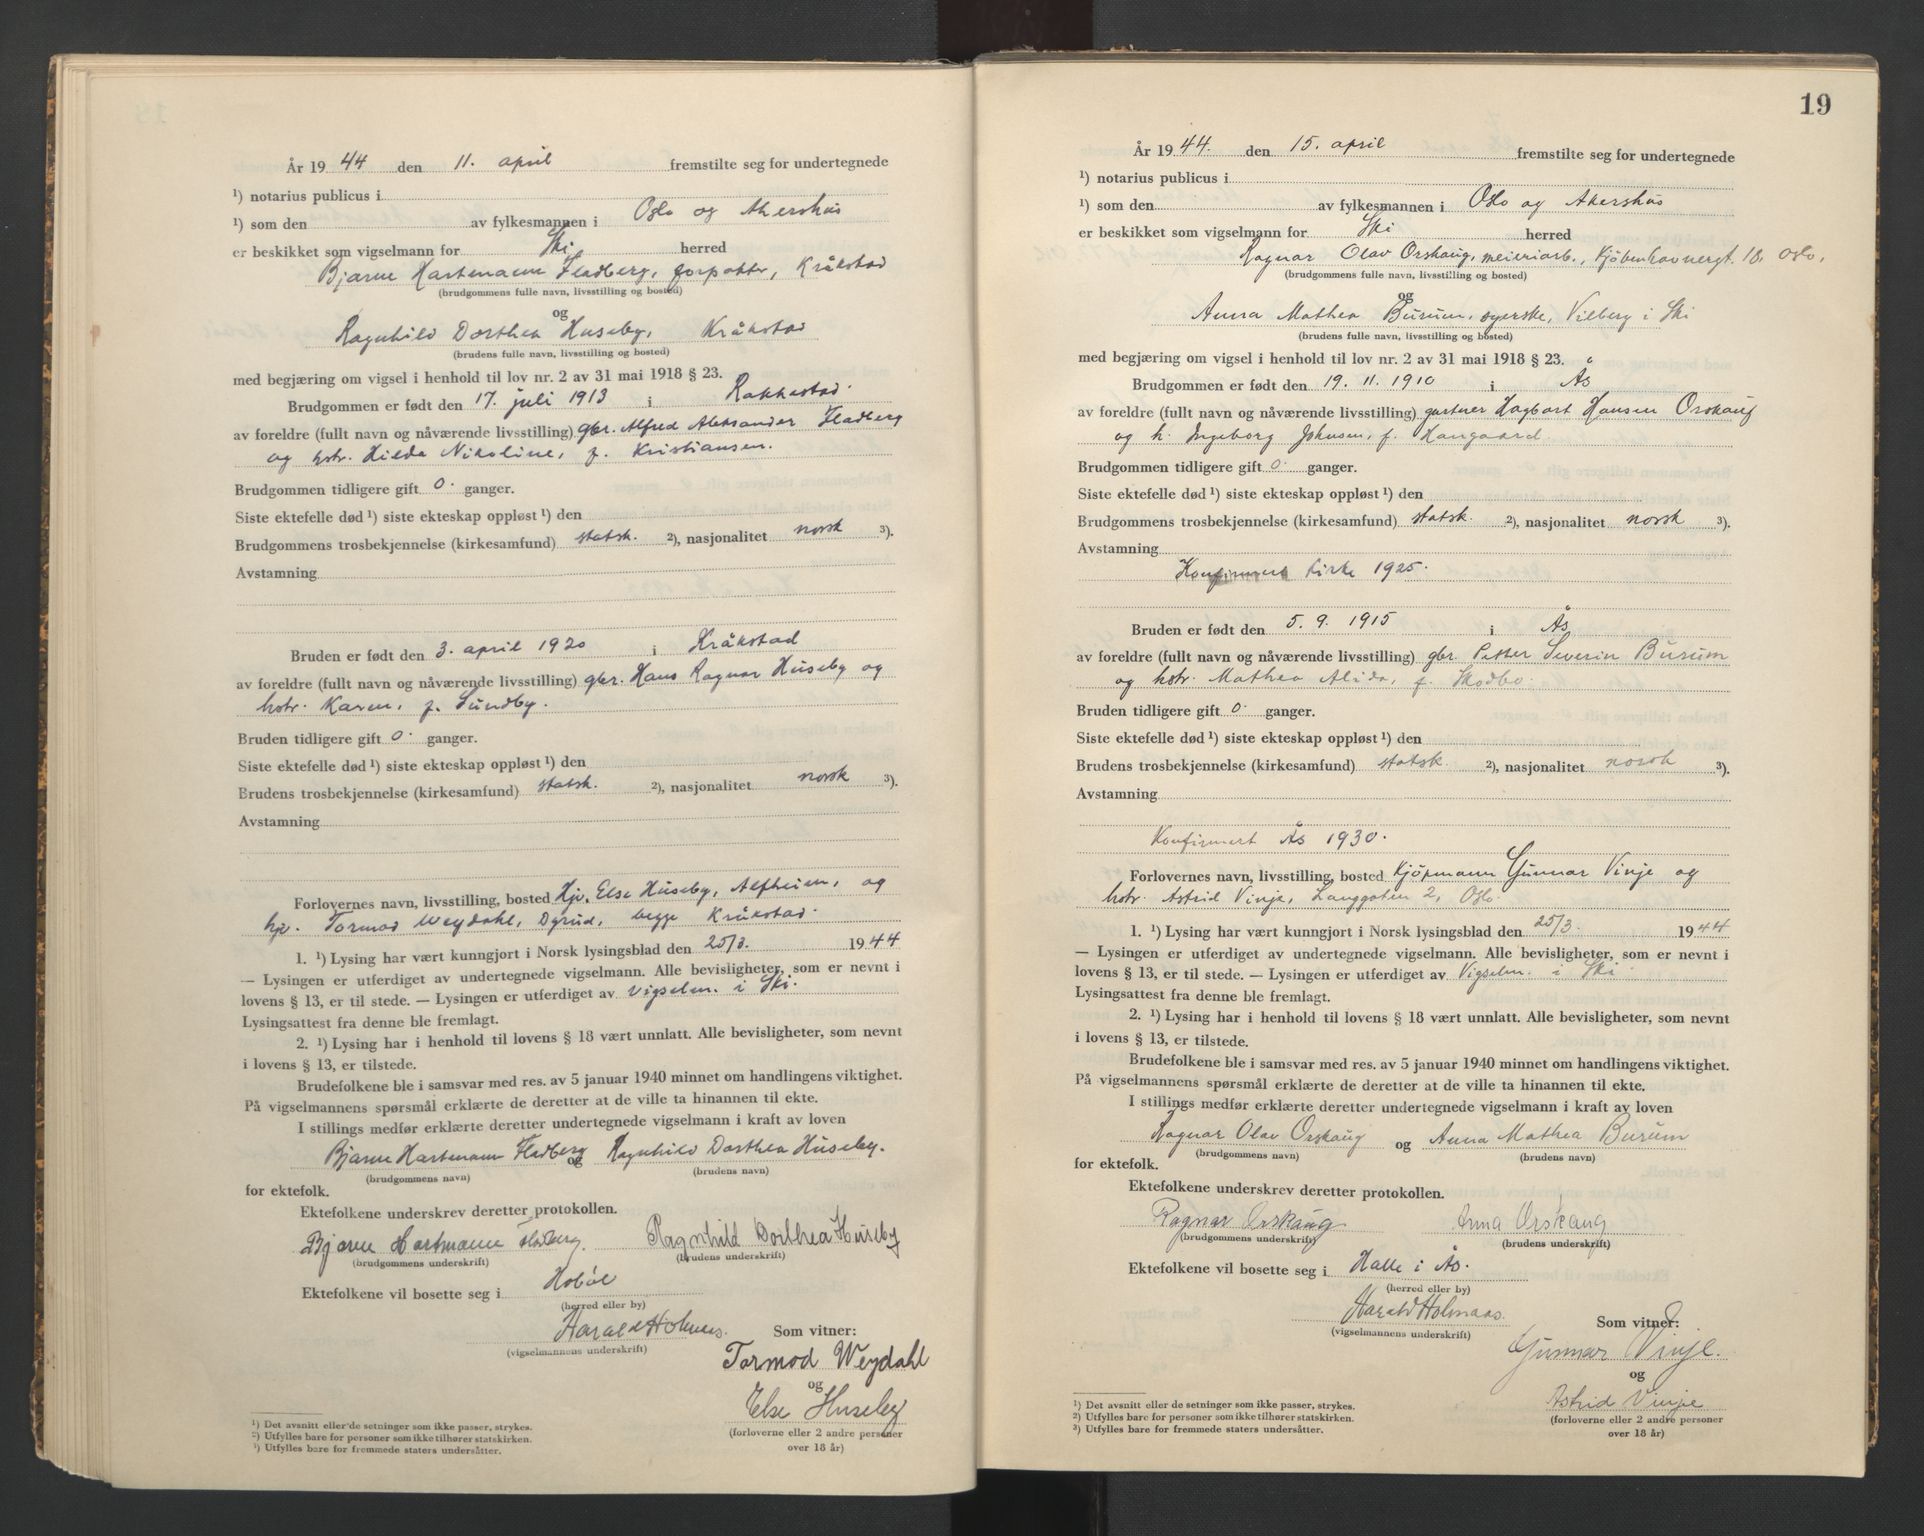 År 19 44 den 11. april fremstilte seg for undertegnede
¹) notarius publicus i
¹) som den av fylkesmannen i Oslo og Akershus
er beskikket som vigselmann for Ski herred
Bjarne Hartmann Fladberg, forpakter, Kråkstad
(brudgommens fulle navn, livsstilling og bosted)
og
Ragnhild Dorthea Huseby, Kråkstad
(brudens fulle navn, livsstilling og bosted)
med begjæring om vigsel i henhold til lov nr. 2 av 31 mai 1918 § 23.
Brudgommen er født den 17. juli 1913 i Rakkestad.
av foreldre (fullt navn og nåværende livsstilling) gbr. Alfred Aleksander Fladberg
og hstr. Hilda Nikoline, f. Kristiansen.
Brudgommen tidligere gift 0. ganger.
Siste ektefelle død ¹) siste ekteskap oppløst ¹) den
Brudgommens trosbekjennelse (kirkesamfund) statsk. ²), nasjonalitet norsk ³).
Avstamning
Bruden er født den 3. april 1920 i Kråkstad
av foreldre (fullt navn og nåværende livsstilling) gbr. Hans Ragnar Huseby og
hstr. Karen, f. Sundby.
Bruden tidligere gift 0. ganger.
Siste ektefelle død ¹) siste ekteskap oppløst ¹) den
Brudens trosbekjennelse (kirkesamfund) statsk. ²), nasjonalitet norsk ³).
Avstamning
Forlovernes navn, livsstilling, bosted Hjv. Else Huseby, Alfheim, og
hjv. Tormod Weydahl, Dyrud, begge Kråkstad.
1. ¹) Lysing har vært kunngjort i Norsk lysingsblad den 25/3. 19 44
— Lysingen er utferdiget av undertegnede vigselmann. Alle bevisligheter, som er nevnt i
lovens § 13, er til stede. — Lysingen er utferdiget av Vigselm. i Ski.
Lysingsattest fra denne ble fremlagt.
2. ¹) Lysing har i henhold til lovens § 18 vært unnlatt. Alle bevisligheter, som nevnt
i lovens § 13, er tilstede.
Brudefolkene ble i samsvar med res. av 5 januar 1940 minnet om handlingens viktighet.
På vigselmannens spørsmål erklærte de deretter at de ville ta hinannen til ekte.
I stillings medfør erklærte deretter undertegnede vigselmann i kraft av loven
Bjarne Hartmann Fladberg og Ragnhild Dorthea Huseby.
(brudgommens navn) (brudens navn)
for ektefolk.
Ektefolkene underskrev deretter protokollen.
Bjarne Hartmann Fladberg. Ragnhild Dorthea Huseby
(brudgommens underskrift) (brudens underskrift)
Ektefolkene vil bosette seg i Hobøl
(herred eller by)
Harald Holmaas. Som vitner:
(vigselmannens underskrift)
Tormod Weydahl
og
Else Huseby
(forloverne eller 2 andre personer
over 18 år)
¹) Det avsnitt eller de setninger som ikke passer, strykes.
²) Utfylles bare for personer som ikke tilhører statskirken.
³) Utfylles bare for fremmede staters undersåtter.
19
År 19 44. den 15. april fremstilte seg for undertegnede
¹) notarius publicus i
¹) som den av fylkesmannen i Oslo og Akershus
er beskikket som vigselmann for Ski herred
Ragnar Olav Orskaug, meieriarb., Kjøbenhavnergt. 18, Oslo,
(brudgommens fulle navn, livsstilling og bosted)
og
Anna Mathea Burum, syerske, Vilberg i Ski
(brudens fulle navn, livsstilling og bosted)
med begjæring om vigsel i henhold til lov nr. 2 av 31 mai 1918 § 23.
Brudgommen er født den 19. 11. 1910 i Ås
av foreldre (fullt navn og nåværende livsstilling) gartner Hagbart Hansen Orskaug
og h. Ingeborg Johnsen, f. Haugaard.
Brudgommen tidligere gift 0. ganger.
Siste ektefelle død ¹) siste ekteskap oppløst ¹) den
Brudgommens trosbekjennelse (kirkesamfund) statsk. ²), nasjonalitet norsk ³).
Avstamning
Konfirmert kirke 1925.
Bruden er født den 5. 9. 1915 i Ås
av foreldre (fullt navn og nåværende livsstilling) gbr. Petter Severin Burum
og hstr. Mathea Alida, f. Skodbo.
Bruden tidligere gift 0. ganger.
Siste ektefelle død ¹) siste ekteskap oppløst ¹) den
Brudens trosbekjennelse (kirkesamfund) statsk. ²), nasjonalitet norsk ³).
Avstamning
Konfirmert Ås 1930.
Forlovernes navn, livsstilling, bosted Kjøpmann Gunnar Vinje og
hstr. Astrid Vinje, Langgaten 2, Oslo.
1. ¹) Lysing har vært kunngjort i Norsk lysingsblad den 25/3. 19 44
— Lysingen er utferdiget av undertegnede vigselmann. Alle bevisligheter, som er nevnt i
lovens § 13, er til stede. — Lysingen er utferdiget av Vigselm. i Ski.
Lysingsattest fra denne ble fremlagt.
2. ¹) Lysing har i henhold til lovens § 18 vært unnlatt. Alle bevisligheter, som nevnt
i lovens § 13, er tilstede.
Brudefolkene ble i samsvar med res. av 5 januar 1940 minnet om handlingens viktighet.
På vigselmannens spørsmål erklærte de deretter at de ville ta hinannen til ekte.
I stillings medfør erklærte deretter undertegnede vigselmann i kraft av loven
Ragnar Olav Orskaug og Anna Mathea Burum
(brudgommens navn) (brudens navn)
for ektefolk.
Ektefolkene underskrev deretter protokollen.
Ragnar Orskaug Anna Orskaug
(brudgommens underskrift) (brudens underskrift)
Ektefolkene vil bosette seg i Halle i Ås.
(herred eller by)
Harald Holmaas. Som vitner:
(vigselmannens underskrift)
Gunnar Vinje.
og
Astrid Vinje
(forloverne eller 2 andre personer
over 18 år)
¹) Det avsnitt eller de setninger som ikke passer, strykes.
²) Utfylles bare for personer som ikke tilhører statskirken.
³) Utfylles bare for fremmede staters undersåtter.